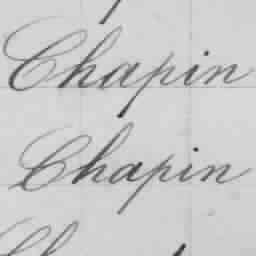 Chapin
Chapin